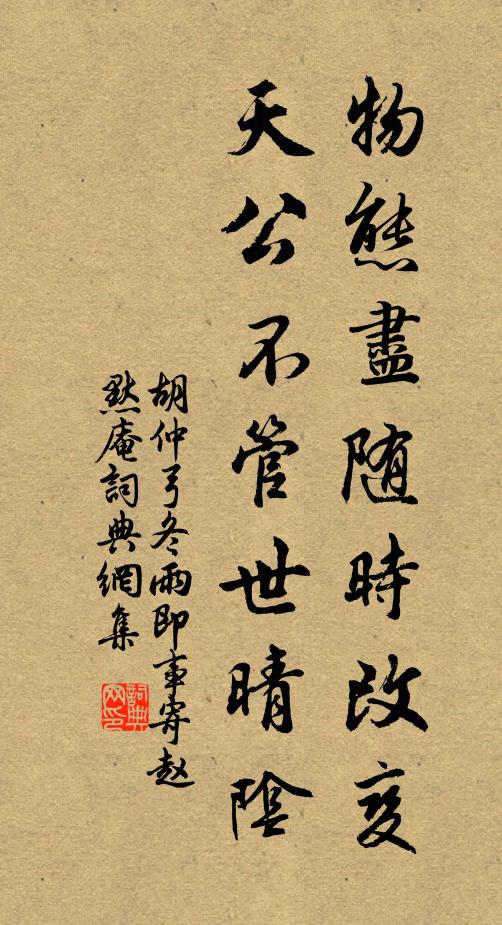 物態盡随時改变
天公不管世晴陰
胡仲弓冬雨即事寄赵
默庵詞典網集
詞典网印